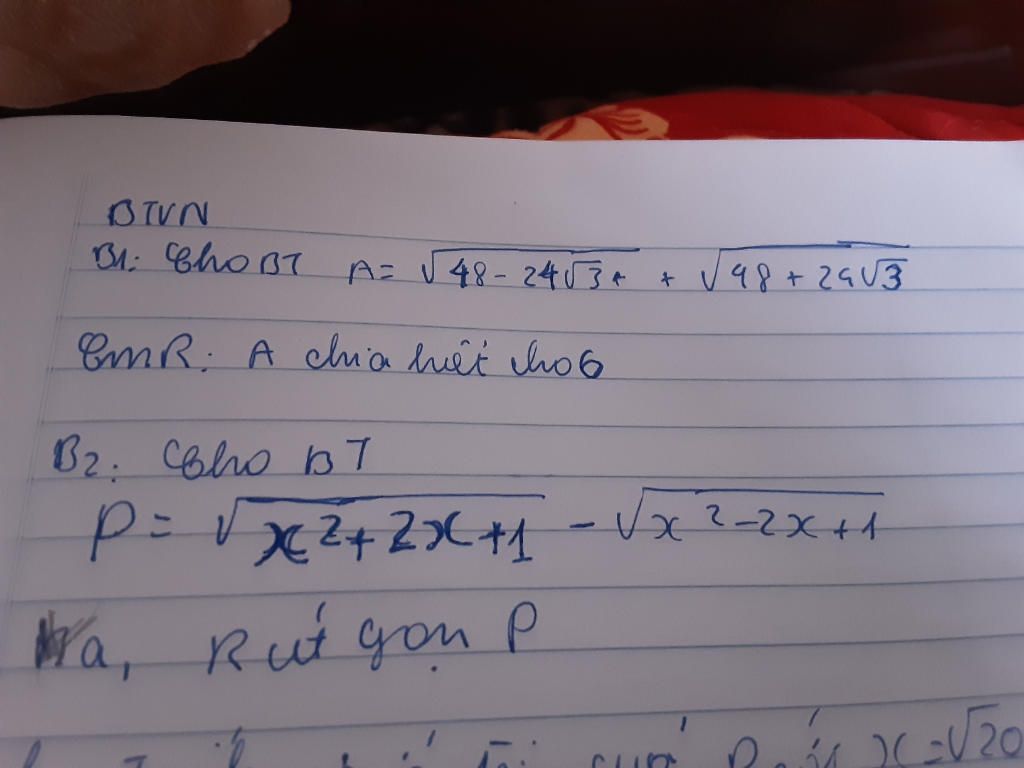 BTVN
B1: Cho BT A = √48 - 24√3 + + √98 + 24√3
CmR: A chia hết cho 6
B2: Cho BT
P = √x² + 2x + 1 - √x² - 2x + 1
a, Rút gọn P
x = √20